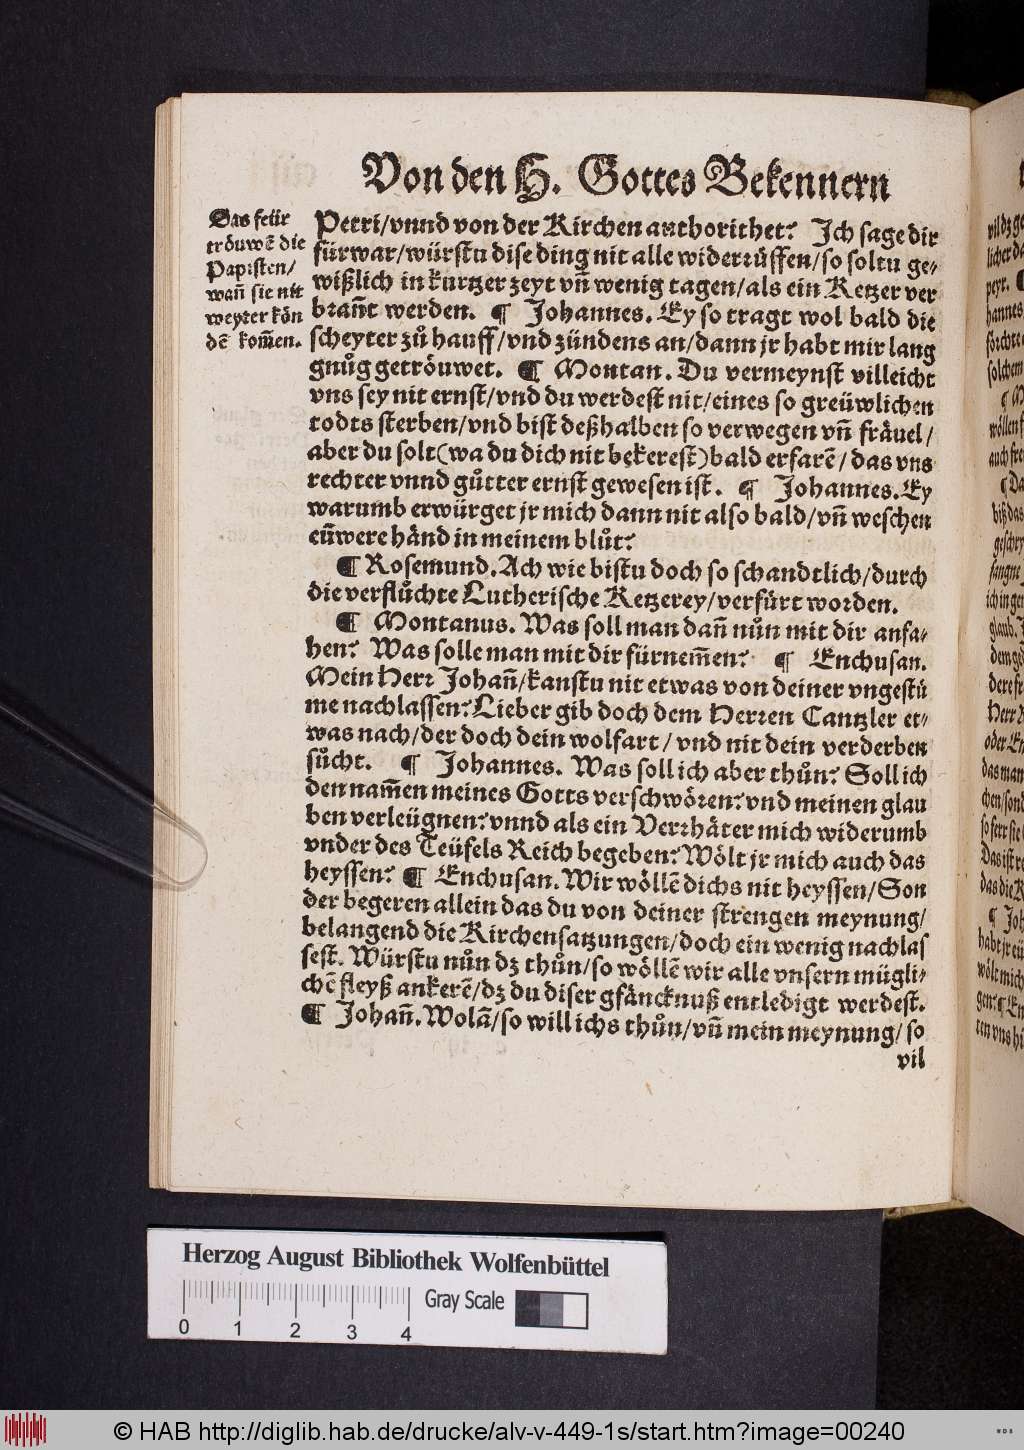 Von den H. Gottes Bekennern
Das feür
tröuwē die
Papisten/
wañ sie nit
weyter kön
dē kom̄en.
Petri/vnnd von der Kirchen authorithet? Ich sage dir
fürwar/würstu dise ding nit alle widerrůffen/so soltu ge-
wißlich in kurtzer zeyt vñ wenig tagen/als ein Ketzer ver
brañt werden. ¶ Johannes. Ey so tragt wol bald die
scheyter zů hauff/vnd zündens an/dann jr habt mir lang
gnůg getröuwet. ¶ Montan. Du vermeynst villeicht
vns sey nit ernst/vnd du werdest nit/eines so greüwlichen
todts sterben/vnd bist deßhalben so verwegen vñ fräuel/
aber du solt(wa du dich nit bekerest)bald erfarē/das vns
rechter vnnd gůtter ernst gewesen ist. ¶ Johannes. Ey
warumb erwürget jr mich dann nit also bald/vñ weschen
eüwere händ in meinem blůt?
¶ Rosemund. Ach wie bistu doch so schandtlich/durch
die verflůchte Lutherische Ketzerey/verfürt worden.
¶ Montanus. Was soll man dañ nůn mit dir anfa-
hen? Was solle man mit dir fürnem̄en? ¶ Enchusan.
Mein Herr Johañ/kanstu nit etwas von deiner vngestü
me nachlassen? Lieber gib doch dem Herren Cantzler et-
was nach/der doch dein wolfart/vnd nit dein verderben
sůcht. ¶ Johannes. Was soll ich aber thůn? Soll ich
den nam̄en meines Gotts verschwören? vnd meinen glau
ben verleügnen? vnnd als ein Verrhäter mich widerumb
vnder des Teüfels Reich begeben? Wölt jr mich auch das
heyssen? ¶ Enchusan. Wir wöllē dichs nit heyssen/Son
der begeren allein das du von deiner strengen meynung/
belangend die Kirchensatzungen/doch ein wenig nachlas
sest. Würstu nůn dz thůn/so wöllē wir alle vnsern mügli-
chē fleyß ankerē/dz du diser gfäncknuß entledigt werdest.
¶ Johañ. Wolā/so will ichs thůn/vñ mein meynung/so
vil
Herzog August Bibliothek Wolfenbüttel
Gray Scale
0 1 2 3 4
© HAB http://diglib.hab.de/drucke/alv-v-449-1s/start.htm?image=00240